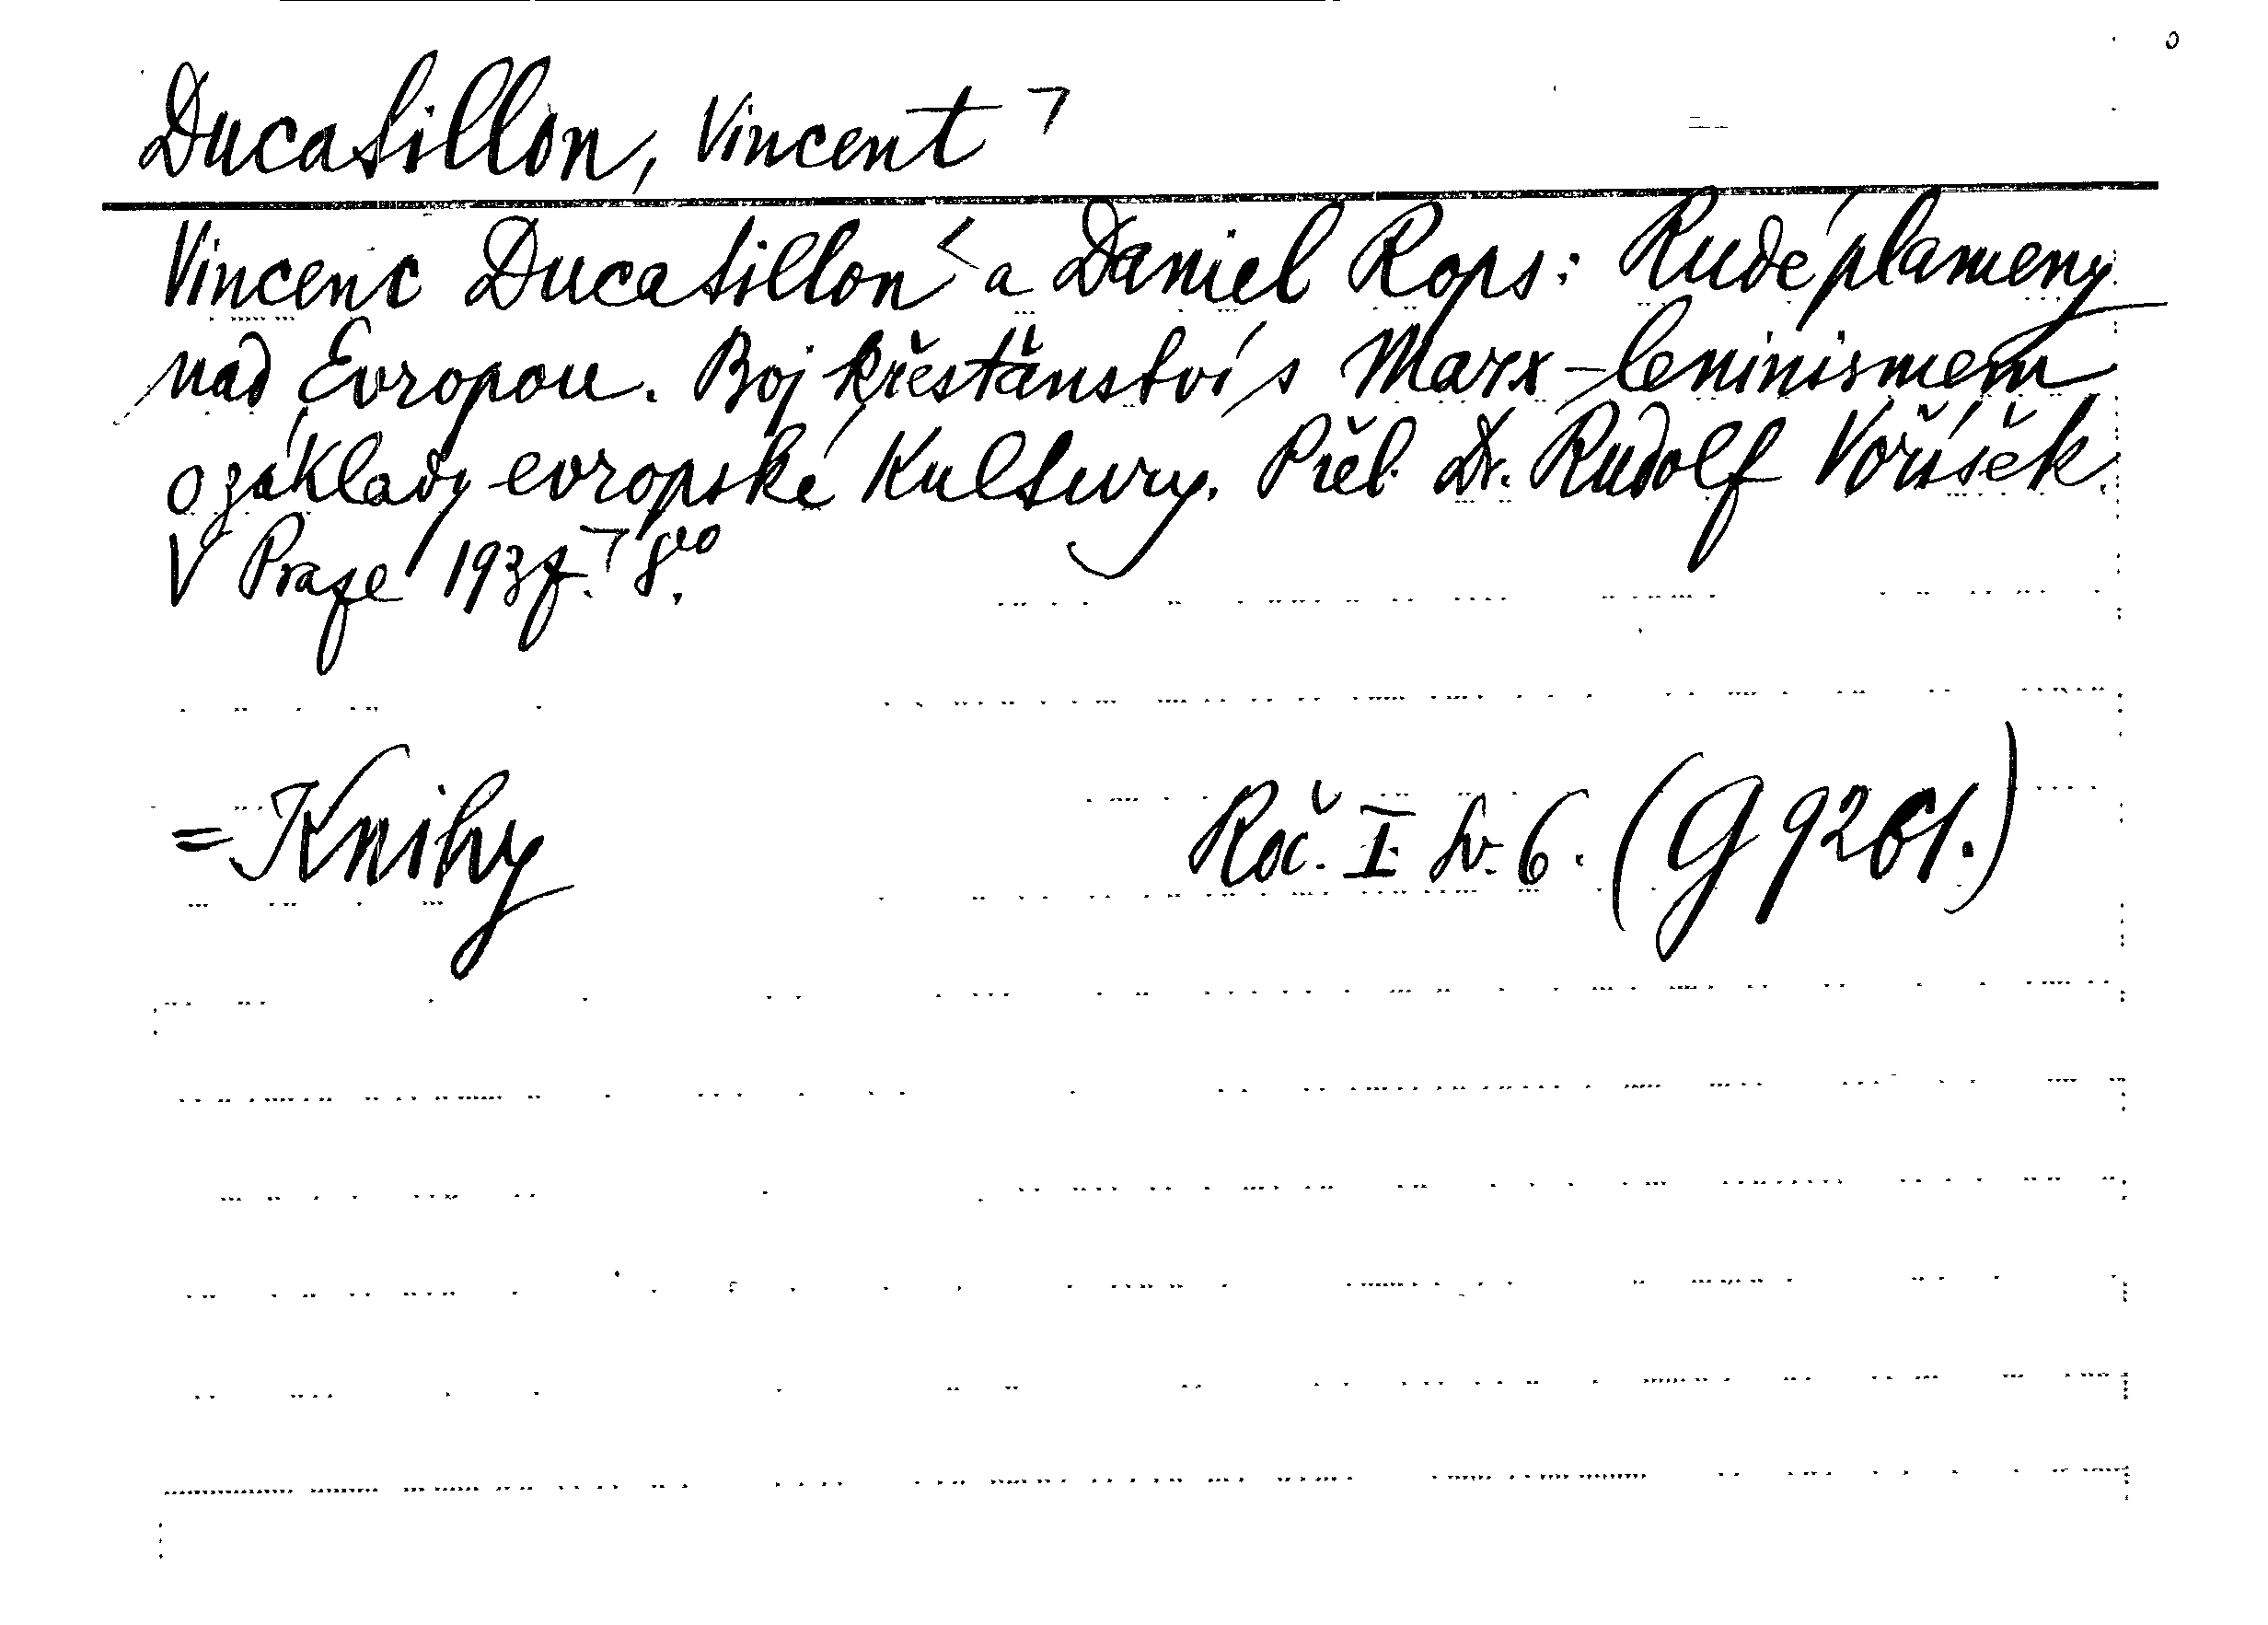 Ducatillon, Vincent ㄱ
Vincenc Ducatillon < a Daniel Rops: Rudé plameny
nad Evropou. Boj křesťanství s Marx-leninismem
o základy evropské kultury. Přel. Dr. Rudolf Voříšek.
V Praze 1937. ㄱ 8vo.
= Knihy Roč. I. sv. 6. (G 9261.)